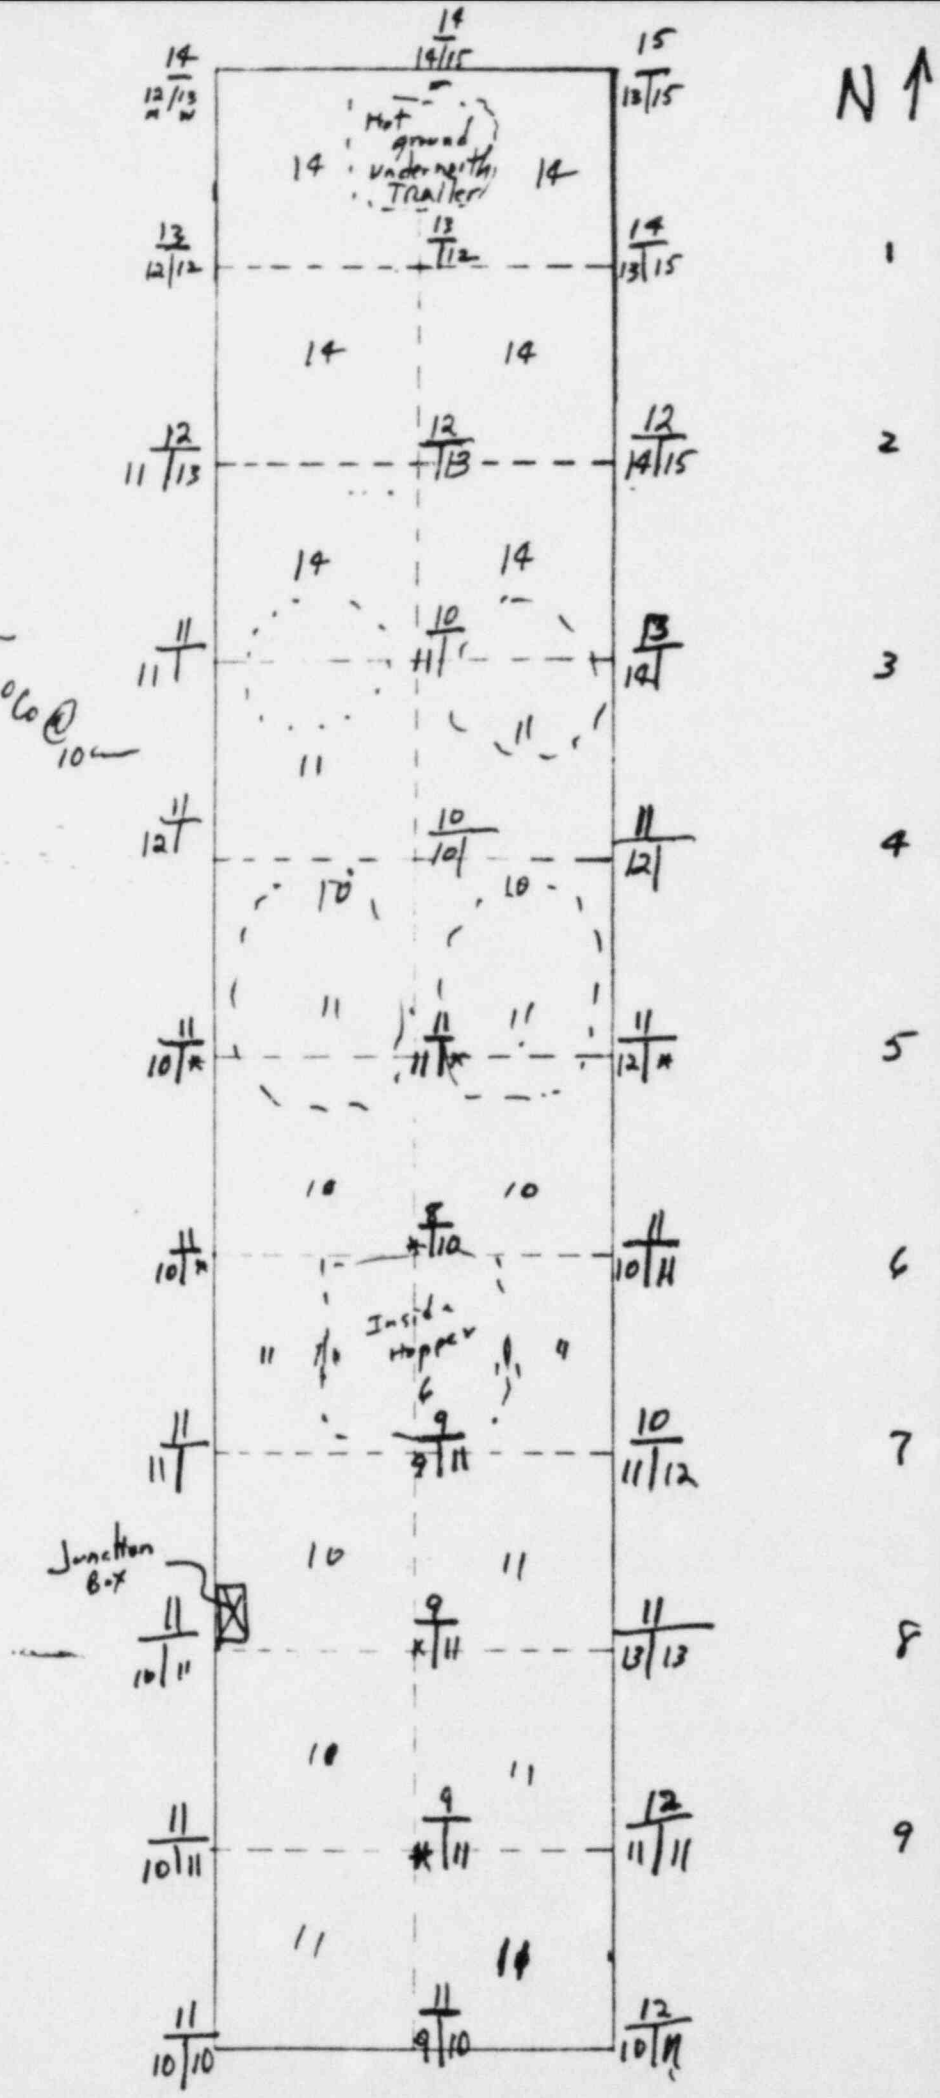 14
14/15
14
12/13
15
13/15
N ↑
Hot
ground
underneith
Trailer
14 14
13
12/12
13
/12
14
13/15
1
14 14
12
11/13
12
/13
12
14/15
2
14 14
11
11/
10
11/
13
14/
3
Co @
10
11 11
11
12/
10
10/
11
12/
4
10 10
11 11
11
10/*
11
11/*
11
12/*
5
10 10
11
10/*
8
*/10
11
10/11
6
Inside
Hopper
6
11 11
11
11/
9
9/11
10
11/12
7
Junction
Box
10 11
11
10/11
9
*/11
11
13/13
8
10 11
11
10/11
9
*/11
12
11/11
9
11 11
11
10/10
11
9/10
12
10/11